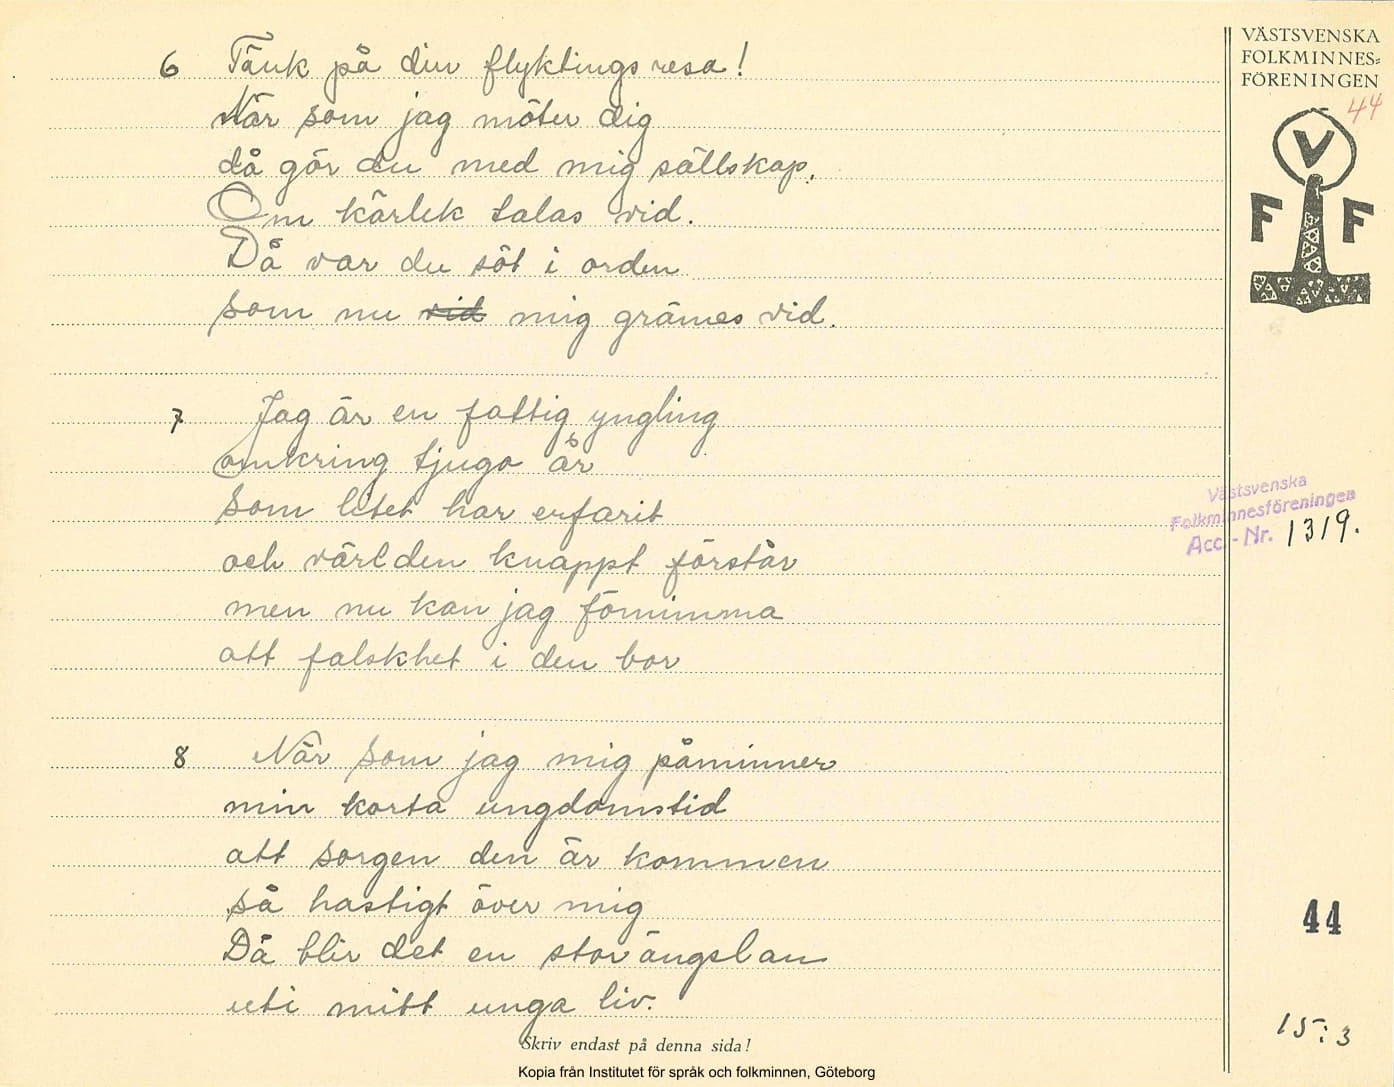 VÄSTSVENSKA
FOLKMINNES-
FÖRENINGEN
44
V
F F
6 Tänk på din flyktingsresa!
När som jag möter dig
då gör du med mig sällskap.
Om kärlek talas vid.
Då var du söt i orden
som nu vid mig grämes vid.
7 Jag är en fattig yngling
omkring tjugo år
som litet har erfarit
och världen knappt förstår
men nu kan jag förnimma
att falskhet i den bor
Västsvenska
Folkminnesföreningen
Acc.-Nr. 1319.
8 När som jag mig påminner
min korta ungdomstid
att sorgen den är kommen
så hastigt över mig
Då blir det en stor ängslan
uti mitt unga liv.
44
15:3
Skriv endast på denna sida!
Kopia från Institutet för språk och folkminnen, Göteborg